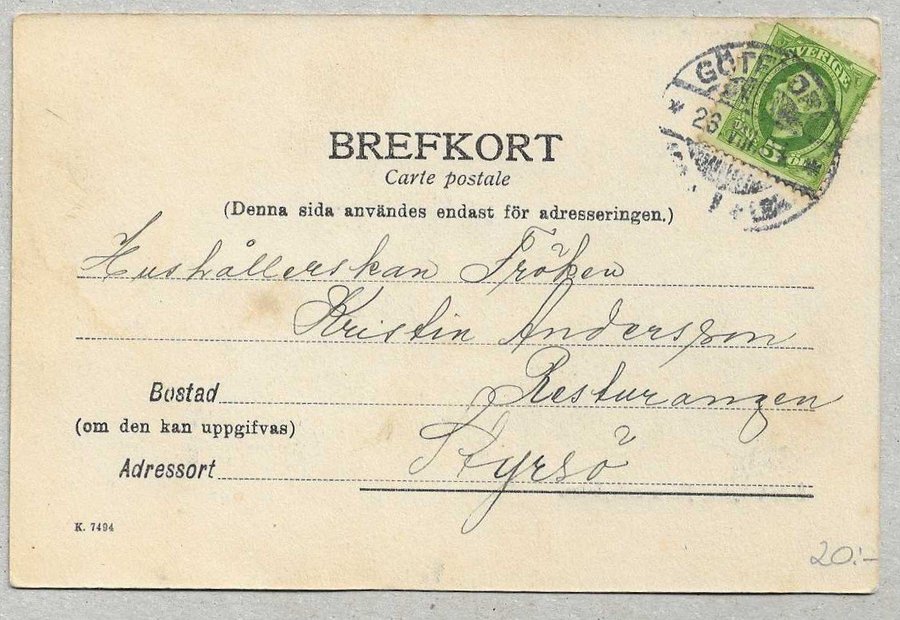 BREFKORT
Carte postale
(Denna sida användes endast för adresseringen.)
SVERIGE
5
GÖTEBORG
26
Hushållerskan Fröken
Kristin Andersson
Bostad Resturangen
(om den kan uppgifvas)
Adressort Styrsö
K. 7494
20:-